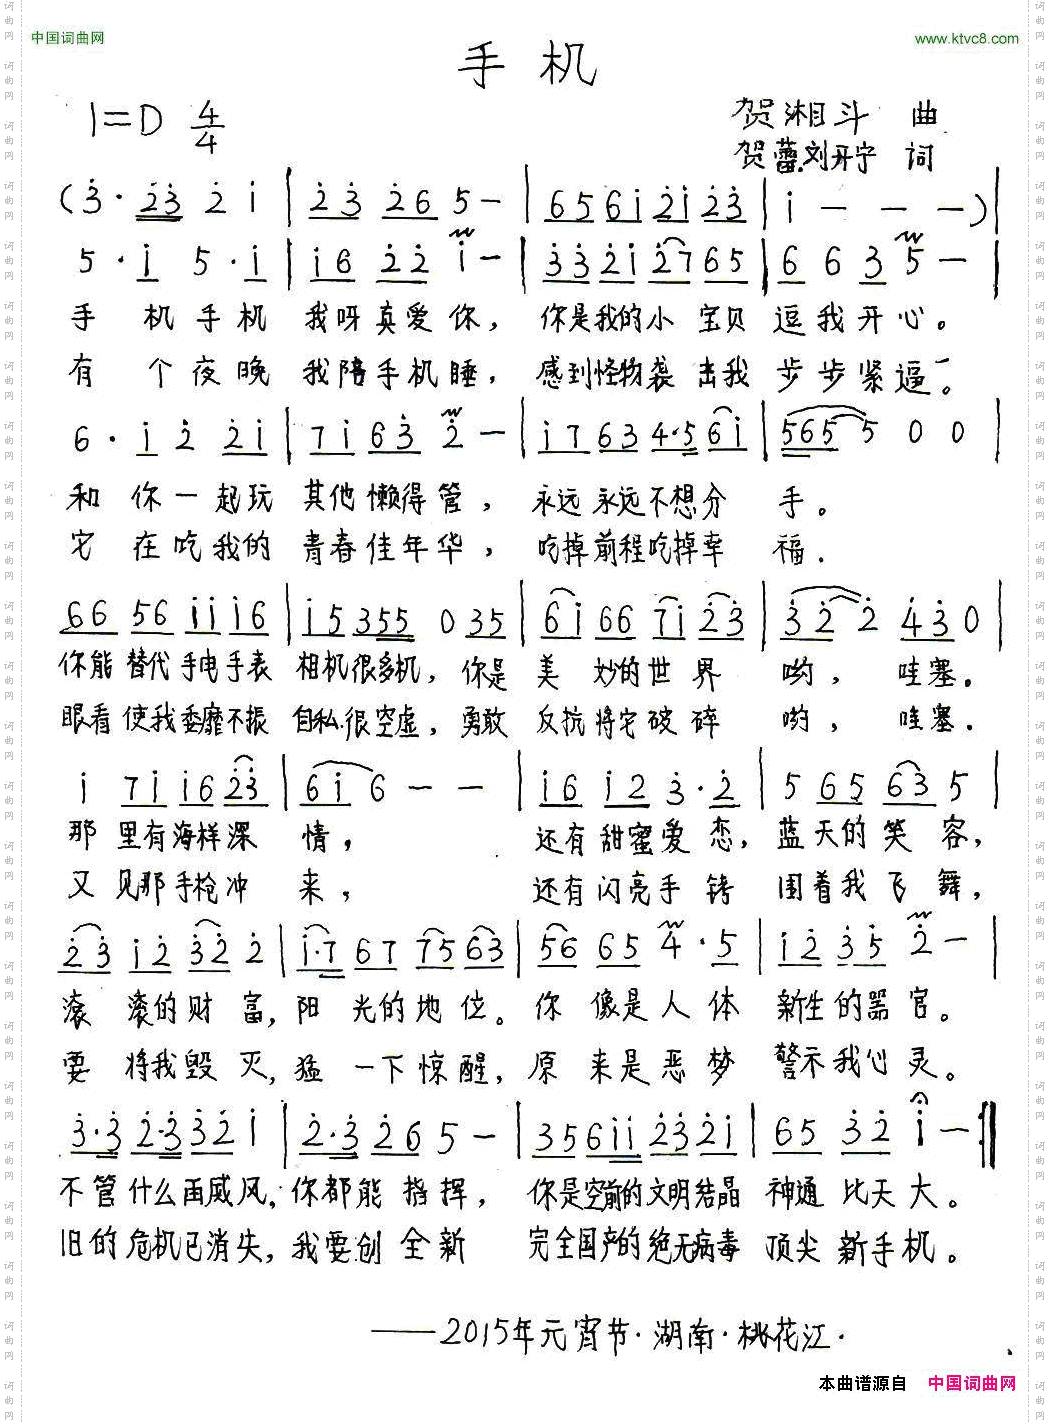 中国词曲网
www.ktvc8.com
手机
1=D 4/4
贺湘斗 曲
贺蕾.刘开宁 词
(3· 23 2 1 | 23 26 5 - | 656i 2i23 | i - - -)|
5·i 5·i | i6 22 i - | 332i 2765 | 6 6 3 5 - |
手 机手机 我呀真爱你， 你是我的小宝贝 逗我开心。
有 个夜晚 我陪手机睡， 感到怪物袭击我 步步紧逼。
6·i 2 2i | 7i 63 2 - | i763 4·56i | 5655 0 0 |
和你一起玩 其他懒得管， 永远永远不想分 手。
它在吃我的 青春佳年华， 吃掉前程吃掉幸 福.
66 56 ii i6 | i5 355 0 35 | 6i 66 7i 23 | 32 2 43 0 |
你能替代手电手表 相机很多机，你是 美妙的世界 哟，哇塞。
眼看使我委靡不振 自私很空虚，勇敢 反抗将它破碎 哟，哇塞.
i 7i i6 23 | 6i 6 - - | i6 i2 3·2 | 5 65 63 5 |
那里有海样深 情， 还有甜蜜爱恋，蓝天的笑容，
又见那手枪冲 来， 还有闪亮手铐 围着我飞舞，
23 i2 32 2 | i·7 67 75 63 | 56 65 4·5 | i2 35 2 - |
滚滚的财富，阳光的地位。你像是人体 新生的器官。
要将我毁灭，猛一下惊醒，原来是恶梦 警示我心灵。
3·3 2·3 32 i | 2·3 26 5 - | 356ii 232i | 65 32 i - :||
不管什么西威风，你都能指挥， 你是空前的文明结晶 神通比天大。
旧的危机已消失，我要创全新 完全国产的绝无病毒 顶尖新手机。
——2015年元宵节·湖南·桃花江·
本曲谱源自 中国词曲网